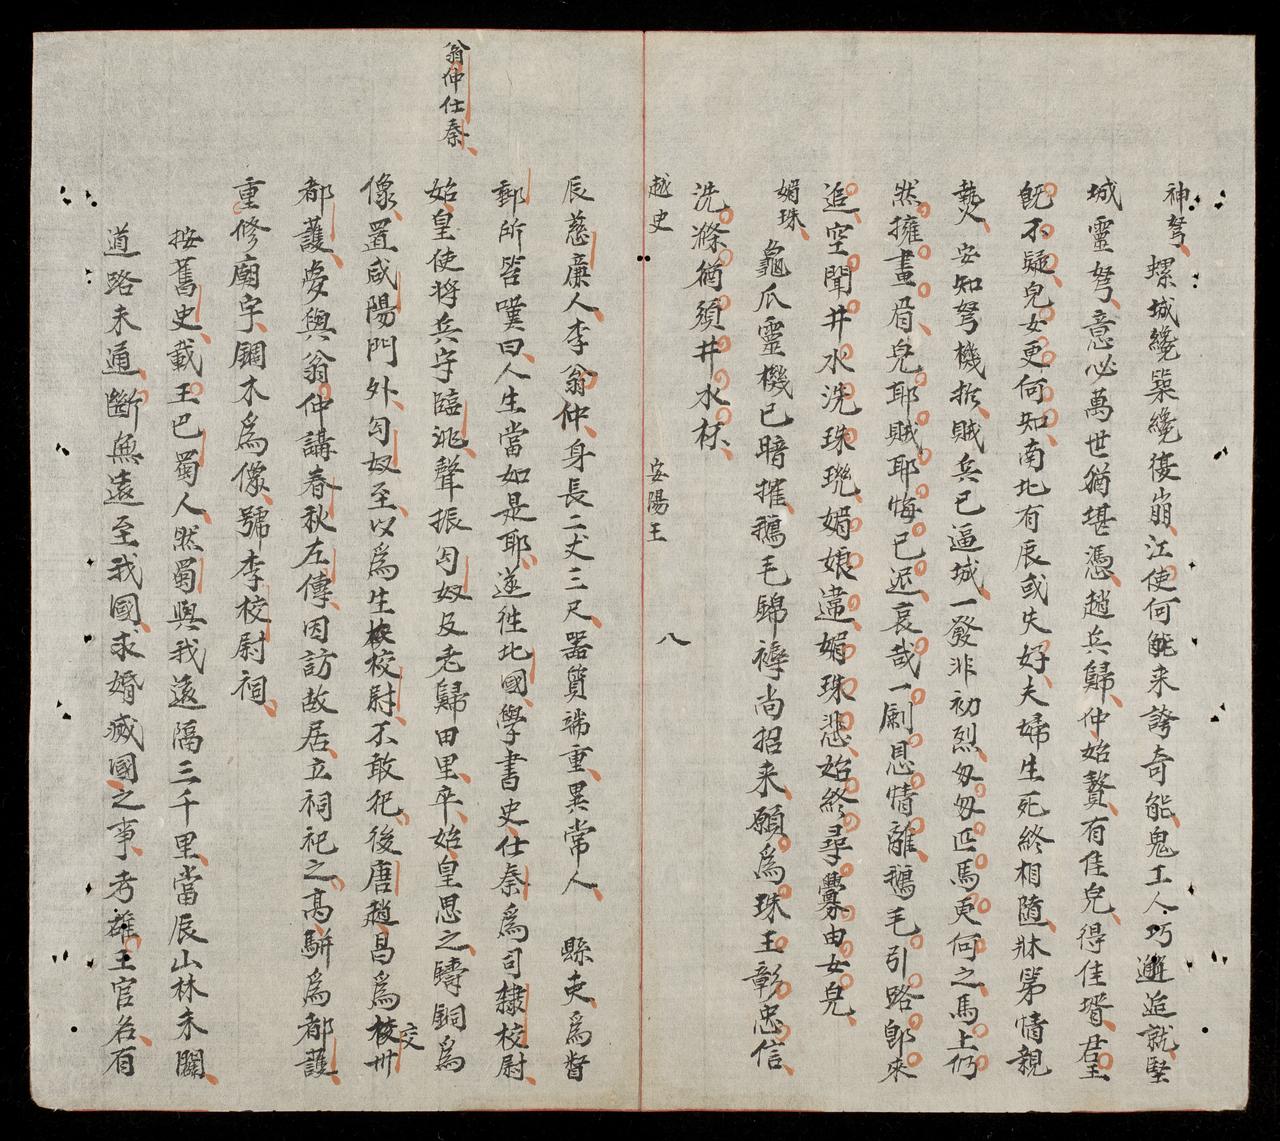 神弩 螺城纔築纔復崩江使何能来誇奇能鬼工人巧邂逅就堅
城靈弩意必萬世猶堪憑趙兵歸仲始贅有佳兒得佳壻君王
既不疑兒女更何知南北有辰或失好夫婦生死終相隨牀笫情親
爇安知弩機拆賊兵已逼城一發非初烈匆匆匹馬更何之馬上仍
然擁畫眉兒耶賊耶悔已遲哀哉一劇恩情離鵝毛引路郎来
追空聞井水洗珠璣媚娘違媚珠悲始終尋釁由女兒
媚珠 龜爪靈機已暗摧鵝毛錦褥尚招来願爲珠玉彰忠信
洗滌猶須井水杯
越史 安陽王 八
翁仲仕秦
辰慈廉人李翁仲身長二丈三尺器質端重異常人 縣吏爲督
郵所笞嘆曰人生當如是耶遂徃北國學書史仕秦爲司隸校尉
始皇使将兵守臨洮聲振匈奴及老歸田里卒始皇思之鑄銅爲
像置咸陽門外匈奴至以爲生校尉不敢犯後唐趙昌爲交州
都護夢與翁仲講春秋左傳因訪故居立祠祀之高駢爲都護
重修廟宇鋼木爲像號李校尉祠
按舊史載王巴蜀人然蜀與我遠隔三千里當辰山林未闢
道路未通斷無遠至我國求婚滅國之事考雄王官名有